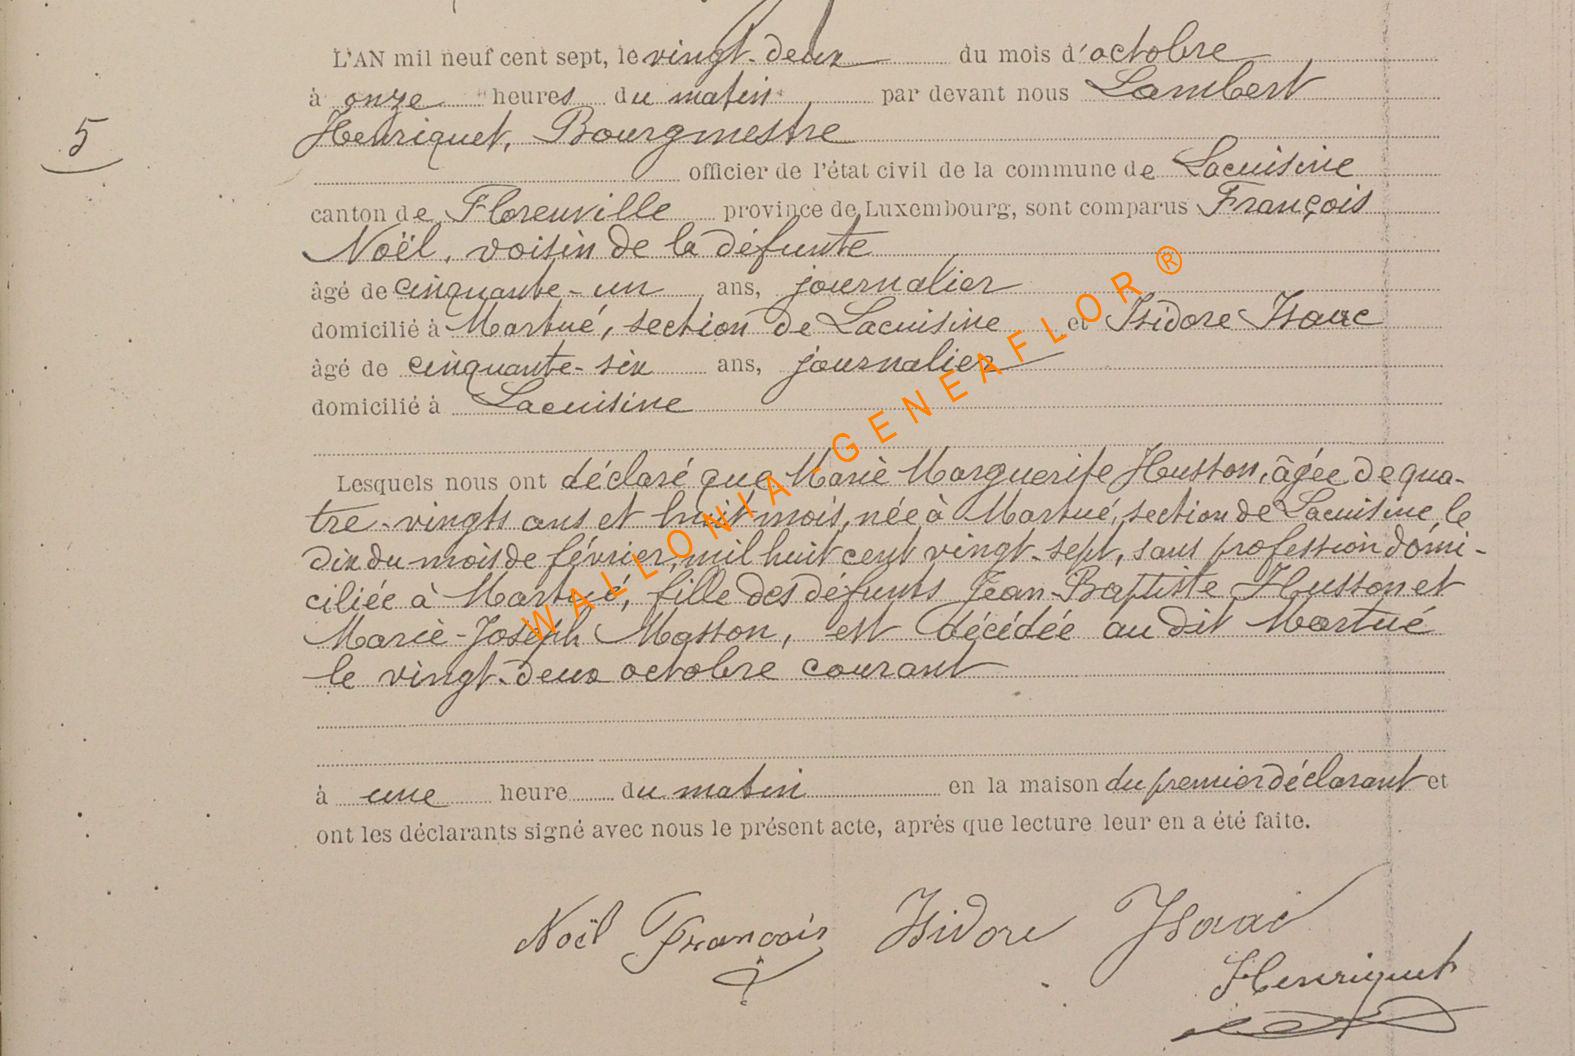 L'AN mil neuf cent sept, le vingt-deux du mois d'octobre
à onze heures du matin par devant nous Lambert
5
Henriquet, Bourgmestre
officier de l'état civil de la commune de Lacuisine
canton de Florenville province de Luxembourg, sont comparus François
Noël, voisin de la défunte
âgé de cinquante-un ans, journalier
domicilié à Martué, section de Lacuisine et Isidore Isaac
âgé de cinquante-six ans, journalier
domicilié à Lacuisine
Lesquels nous ont déclaré que Marie Marguerite Husson, âgée de qua-
tre-vingts ans et huit mois, née à Martué, section de Lacuisine, le
dix du mois de février, mil huit cent vingt-sept, sans profession domi-
ciliée à Martué, fille des défunts Jean-Baptiste Husson et
Marie-Joseph Masson, est décédée au dit Martué
le vingt-deux octobre courant
à une heure du matin en la maison du premier déclarant et
ont les déclarants signé avec nous le présent acte, après que lecture leur en a été faite.
Noël François Isidore Isaac
Henriquet
WALLONIA-GENEAFLOR ®